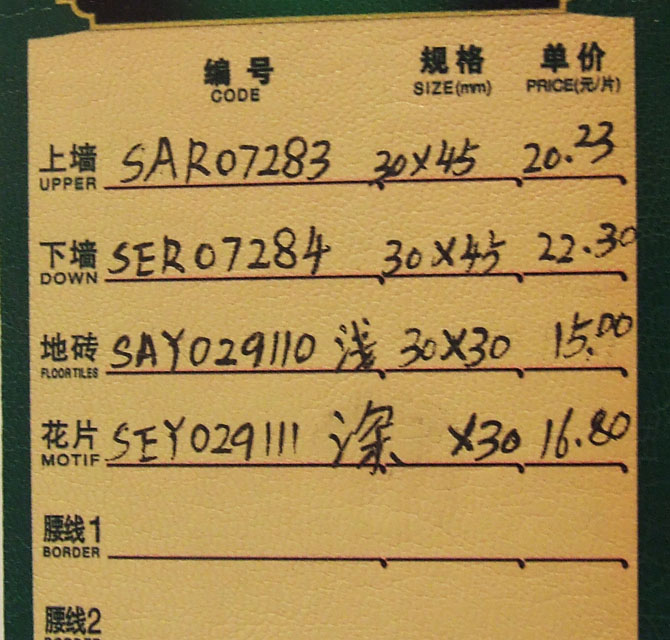 编号 规格 单价
CODE SIZE(mm) PRICE(元/片)
上墙 SAR07283 30X45 20.23
UPPER
下墙 SER07284 30X45 22.30
DOWN
地砖 SAY029110 浅 30X30 15.00
FLOOR TILES
花片 SEY029111 深 X30 16.80
MOTIF
腰线1
BORDER
腰线2